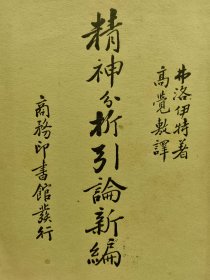 弗洛伊特著
高覺敷譯
精神分析引論新編
商務印書館發行